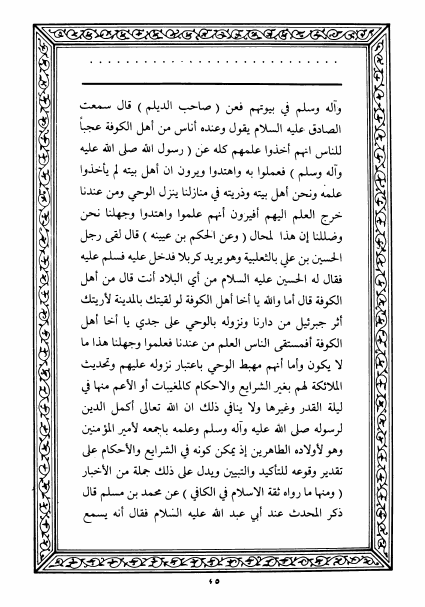 وآله وسلم في بيوتهم فعن ( صاحب الديلم ) قال سمعت
الصادق عليه السلام يقول وعنده أناس من أهل الكوفة عجباً
للناس انهم أخذوا علمهم كله عن ( رسول الله صلى الله عليه
وآله وسلم ) فعملوا به واهتدوا ويرون ان أهل بيته لم يأخذوا
علمه ونحن أهل بيته وذريته في منازلنا ينزل الوحي ومن عندنا
خرج العلم اليهم أفيرون أنهم علموا واهتدوا وجهلنا نحن
وضللنا إن هذا لمحال ( وعن الحكم بن عيينه ) قال لقى رجل
الحسين بن علي بالثعلبية وهو يريد كربلا فدخل عليه فسلم عليه
فقال له الحسين عليه السلام من أي البلاد أنت قال من أهل
الكوفة قال أما والله يا أخا أهل الكوفة لو لقيتك بالمدينة لأريتك
أثر جبرئيل من دارنا ونزوله بالوحي على جدي يا أخا أهل
الكوفة أفمستقى الناس العلم من عندنا فعلموا وجهلنا هذا ما
لا يكون وأما أنهم مهبط الوحي باعتبار نزوله عليهم وتحديث
الملائكة لهم بغير الشرايع والاحكام كالمغيبات أو الأعم منها في
ليلة القدر وغيرها ولا ينافي ذلك ان الله تعالى أكمل الدين
لرسوله صلى الله عليه وآله وسلم وعلمه باجمعه لأمير المؤمنين
وهو لأولاده الطاهرين إذ يمكن كونه في الشرايع والأحكام على
تقدير وقوعه للتأكيد والتبيين ويدل على ذلك جملة من الأخبار
( ومنها ما رواه ثقة الاسلام في الكافي ) عن محمد بن مسلم قال
ذكر المحدث عند أبي عبد الله عليه السلام فقال أنه يسمع
٤٥